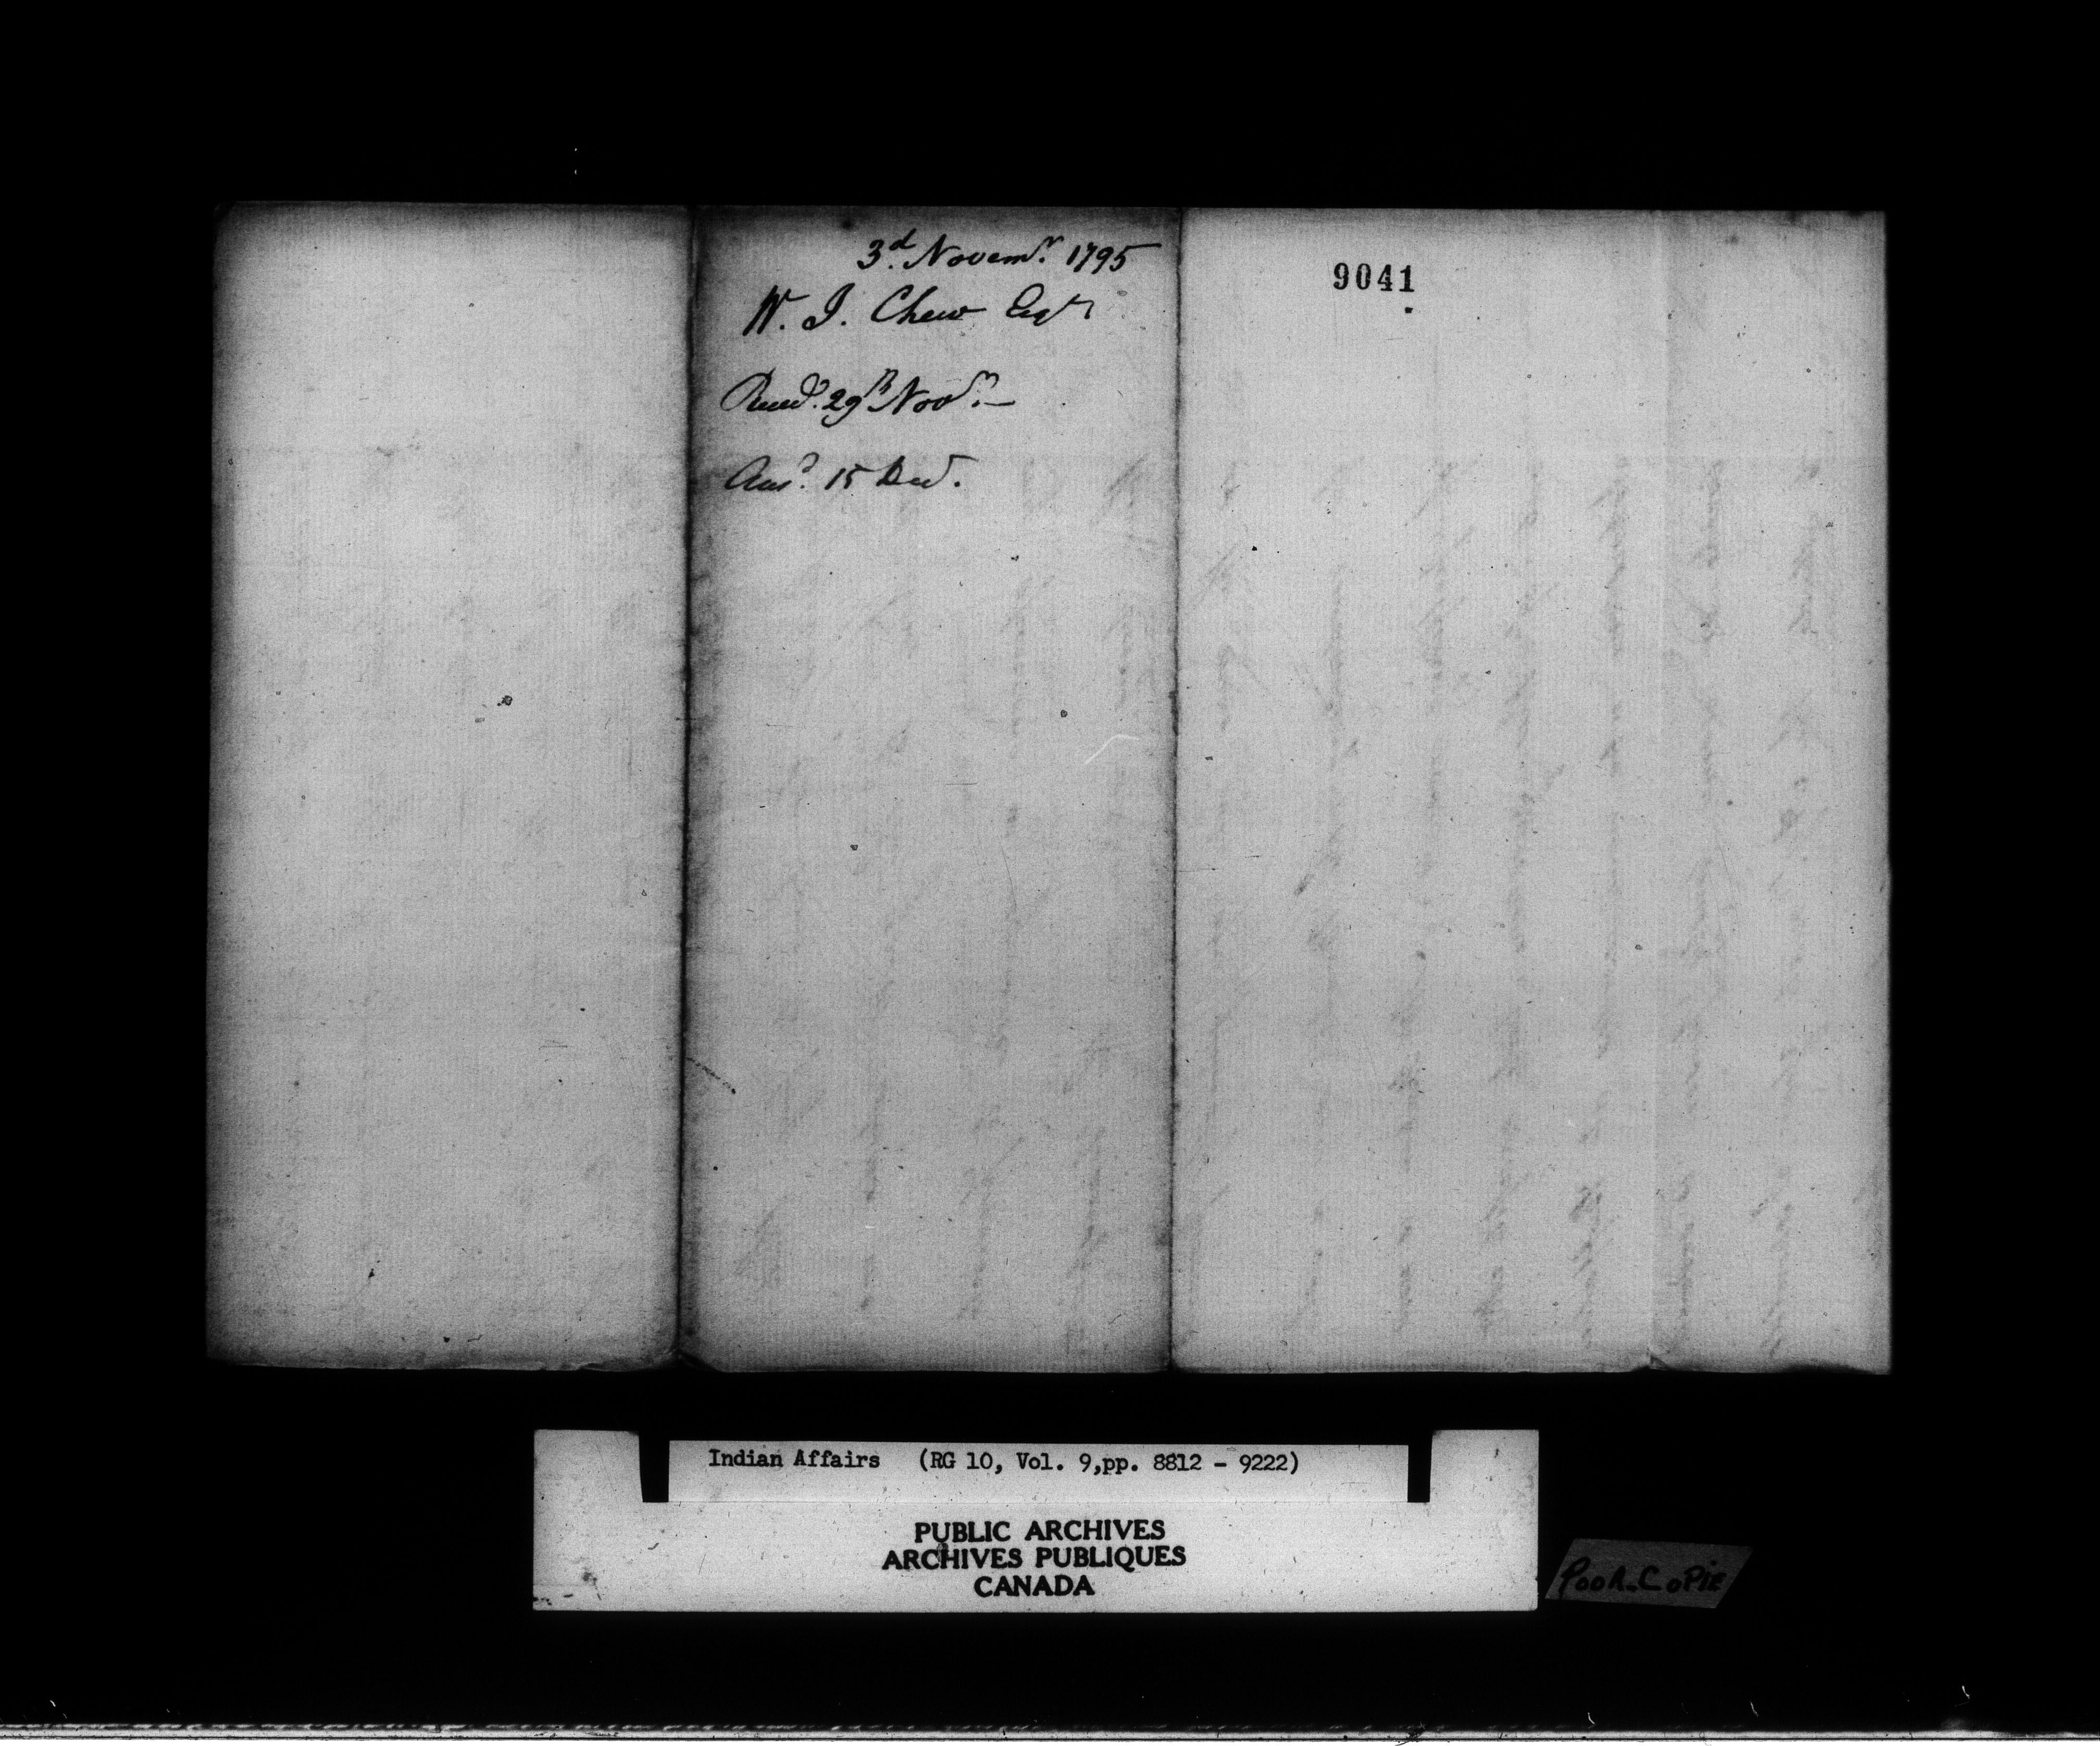 3d. Novemr. 1795
W. J. Chew Esqr
Recd. 29th Novr. —
Ansd. 15 Decr.
9041
Indian Affairs (RG 10, Vol. 9,pp. 8812 - 9222)
PUBLIC ARCHIVES
ARCHIVES PUBLIQUES
CANADA
POOR.COPIE